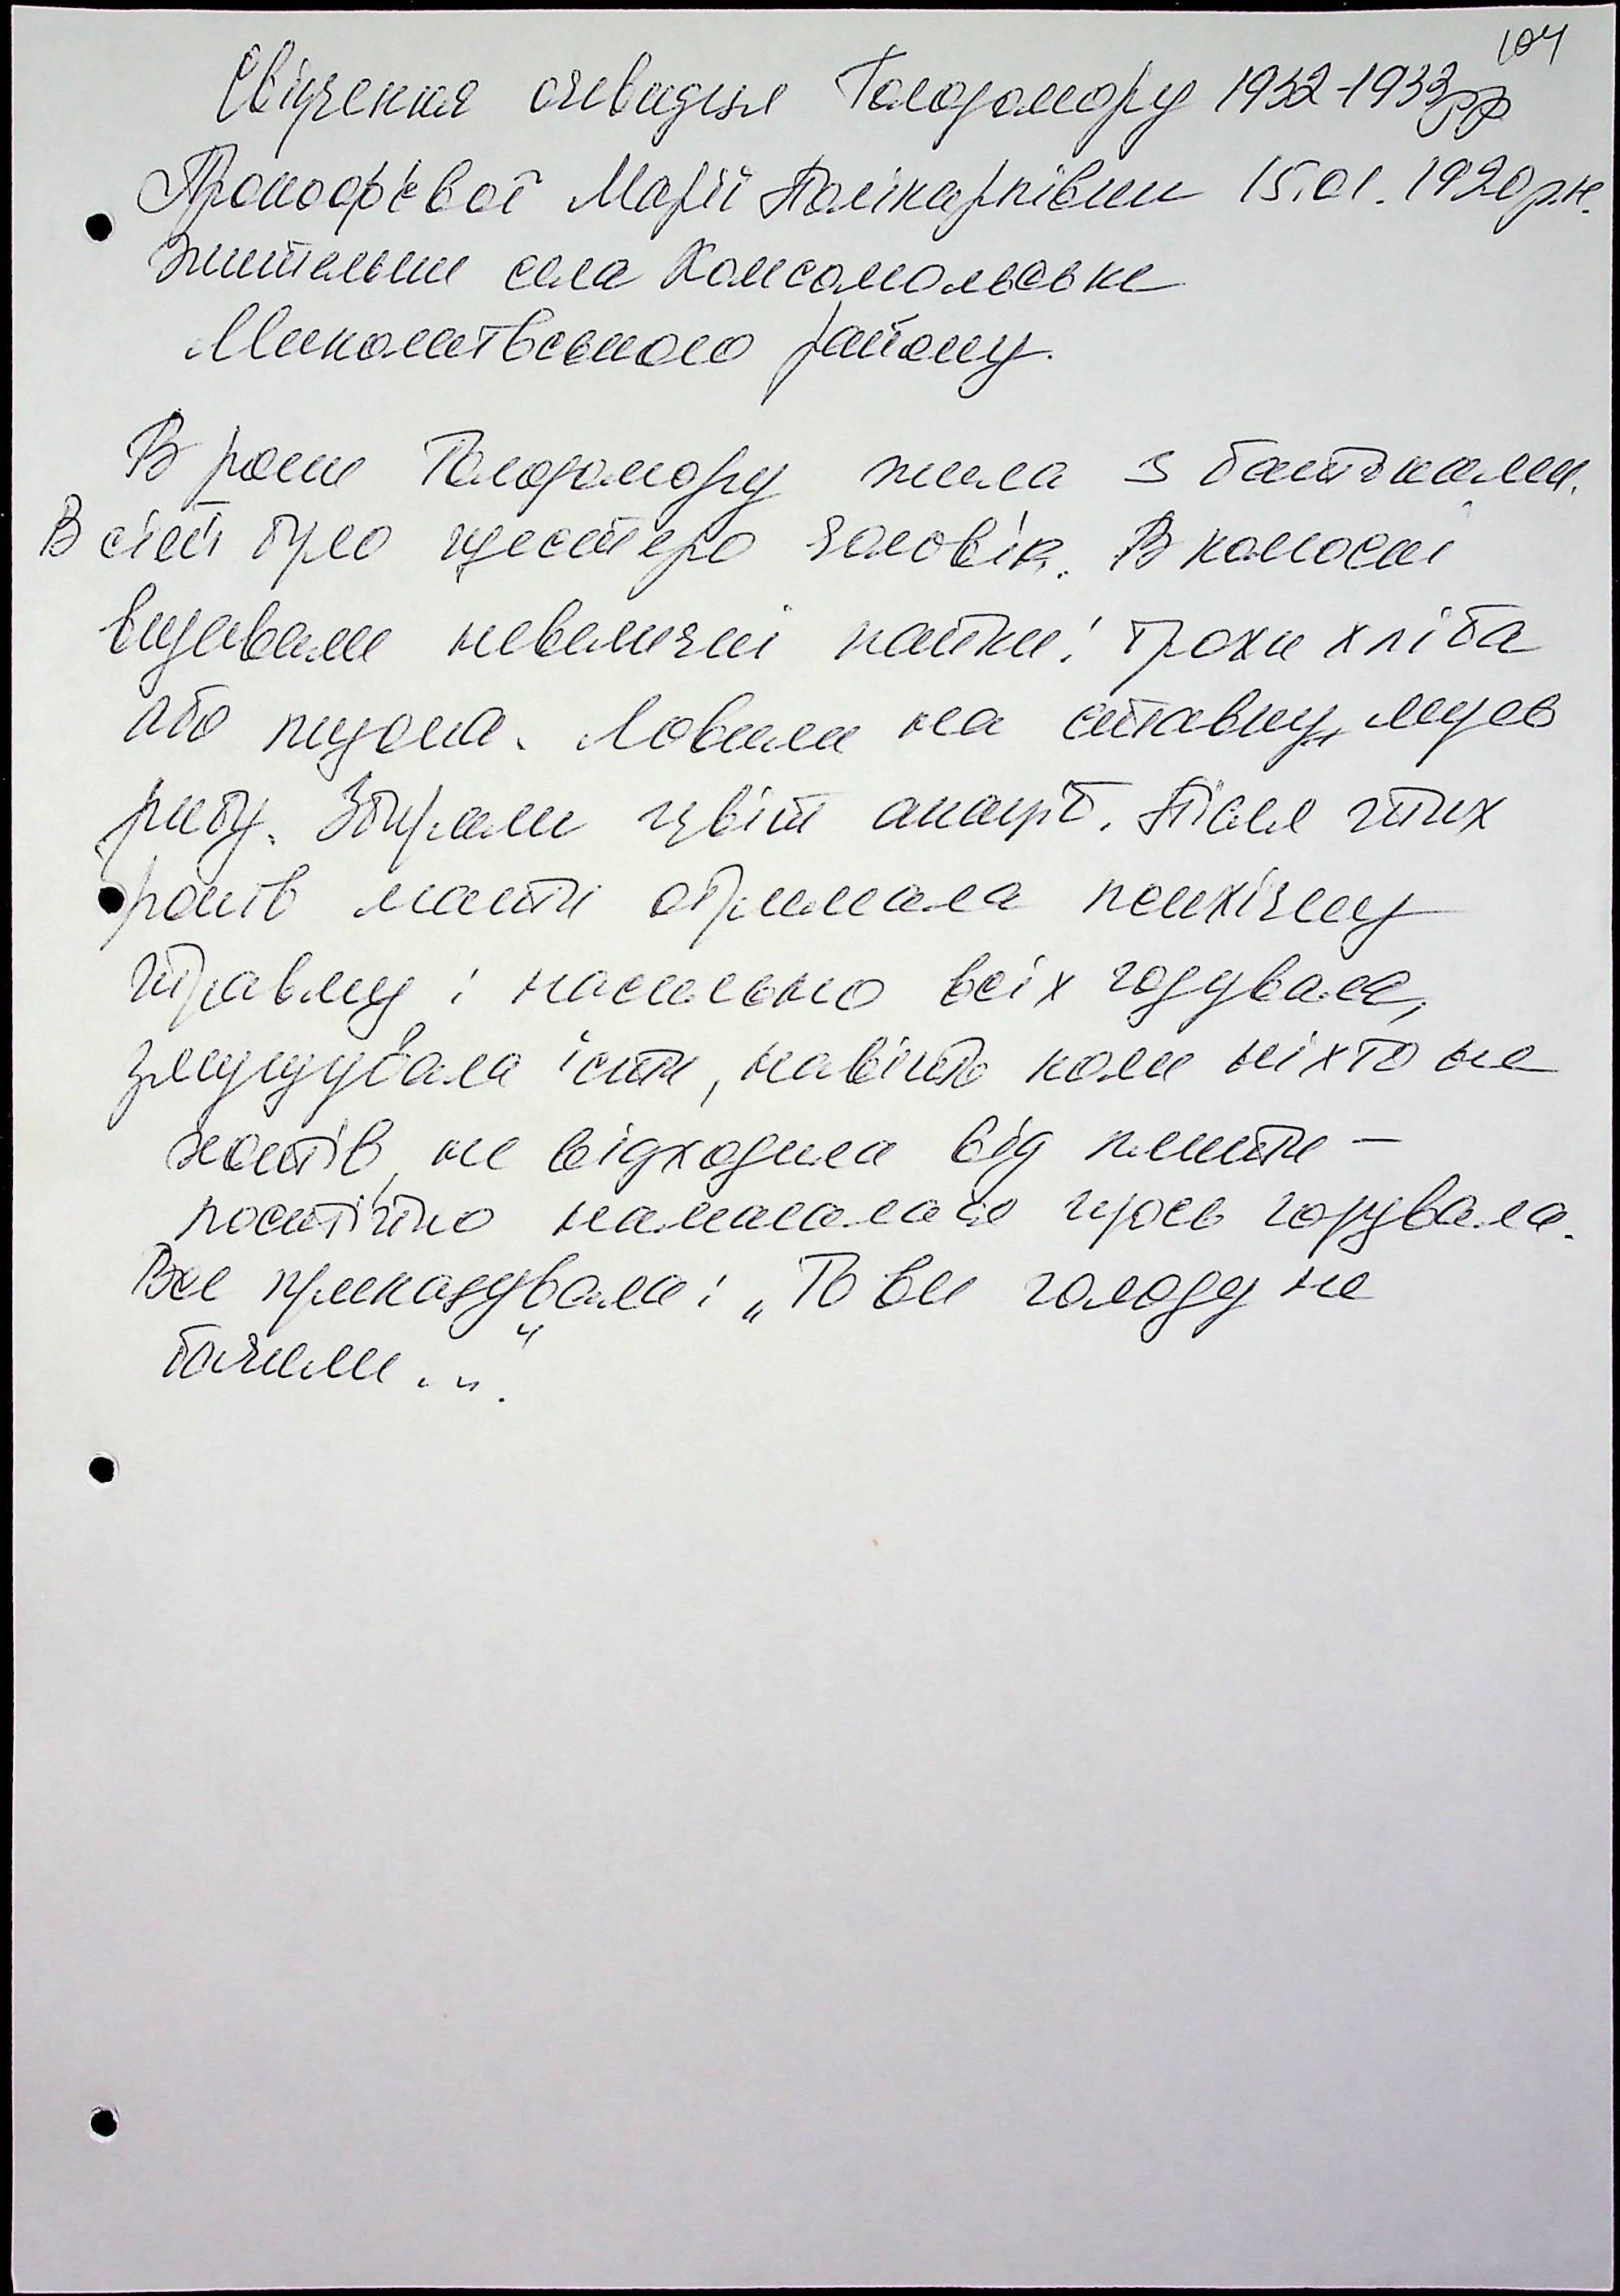 104
Свідчення очевидця Голодомору 1932-1933рр
Прокоф'євої Марії Полікарпівни 15.01.1920р.н.
жительки села Комсомольське
Миколаївського району.
В роки Голодомору жила з батьками.
В сім'ї було шестеро чоловік. В колгоспі
видавали невеличкі пайки: трохи хліба
або пшона. Ловили на ставку
рибу. Збирали цвіт акації. Після цих
років мати отримала психічну
травму і насильно всіх годувала,
змушувала їсти, навіть коли ніхто не
хотів, не відходила від плити –
постійно намагалась щось готувала.
Все приказувала: „То ви голоду не
бачили..."